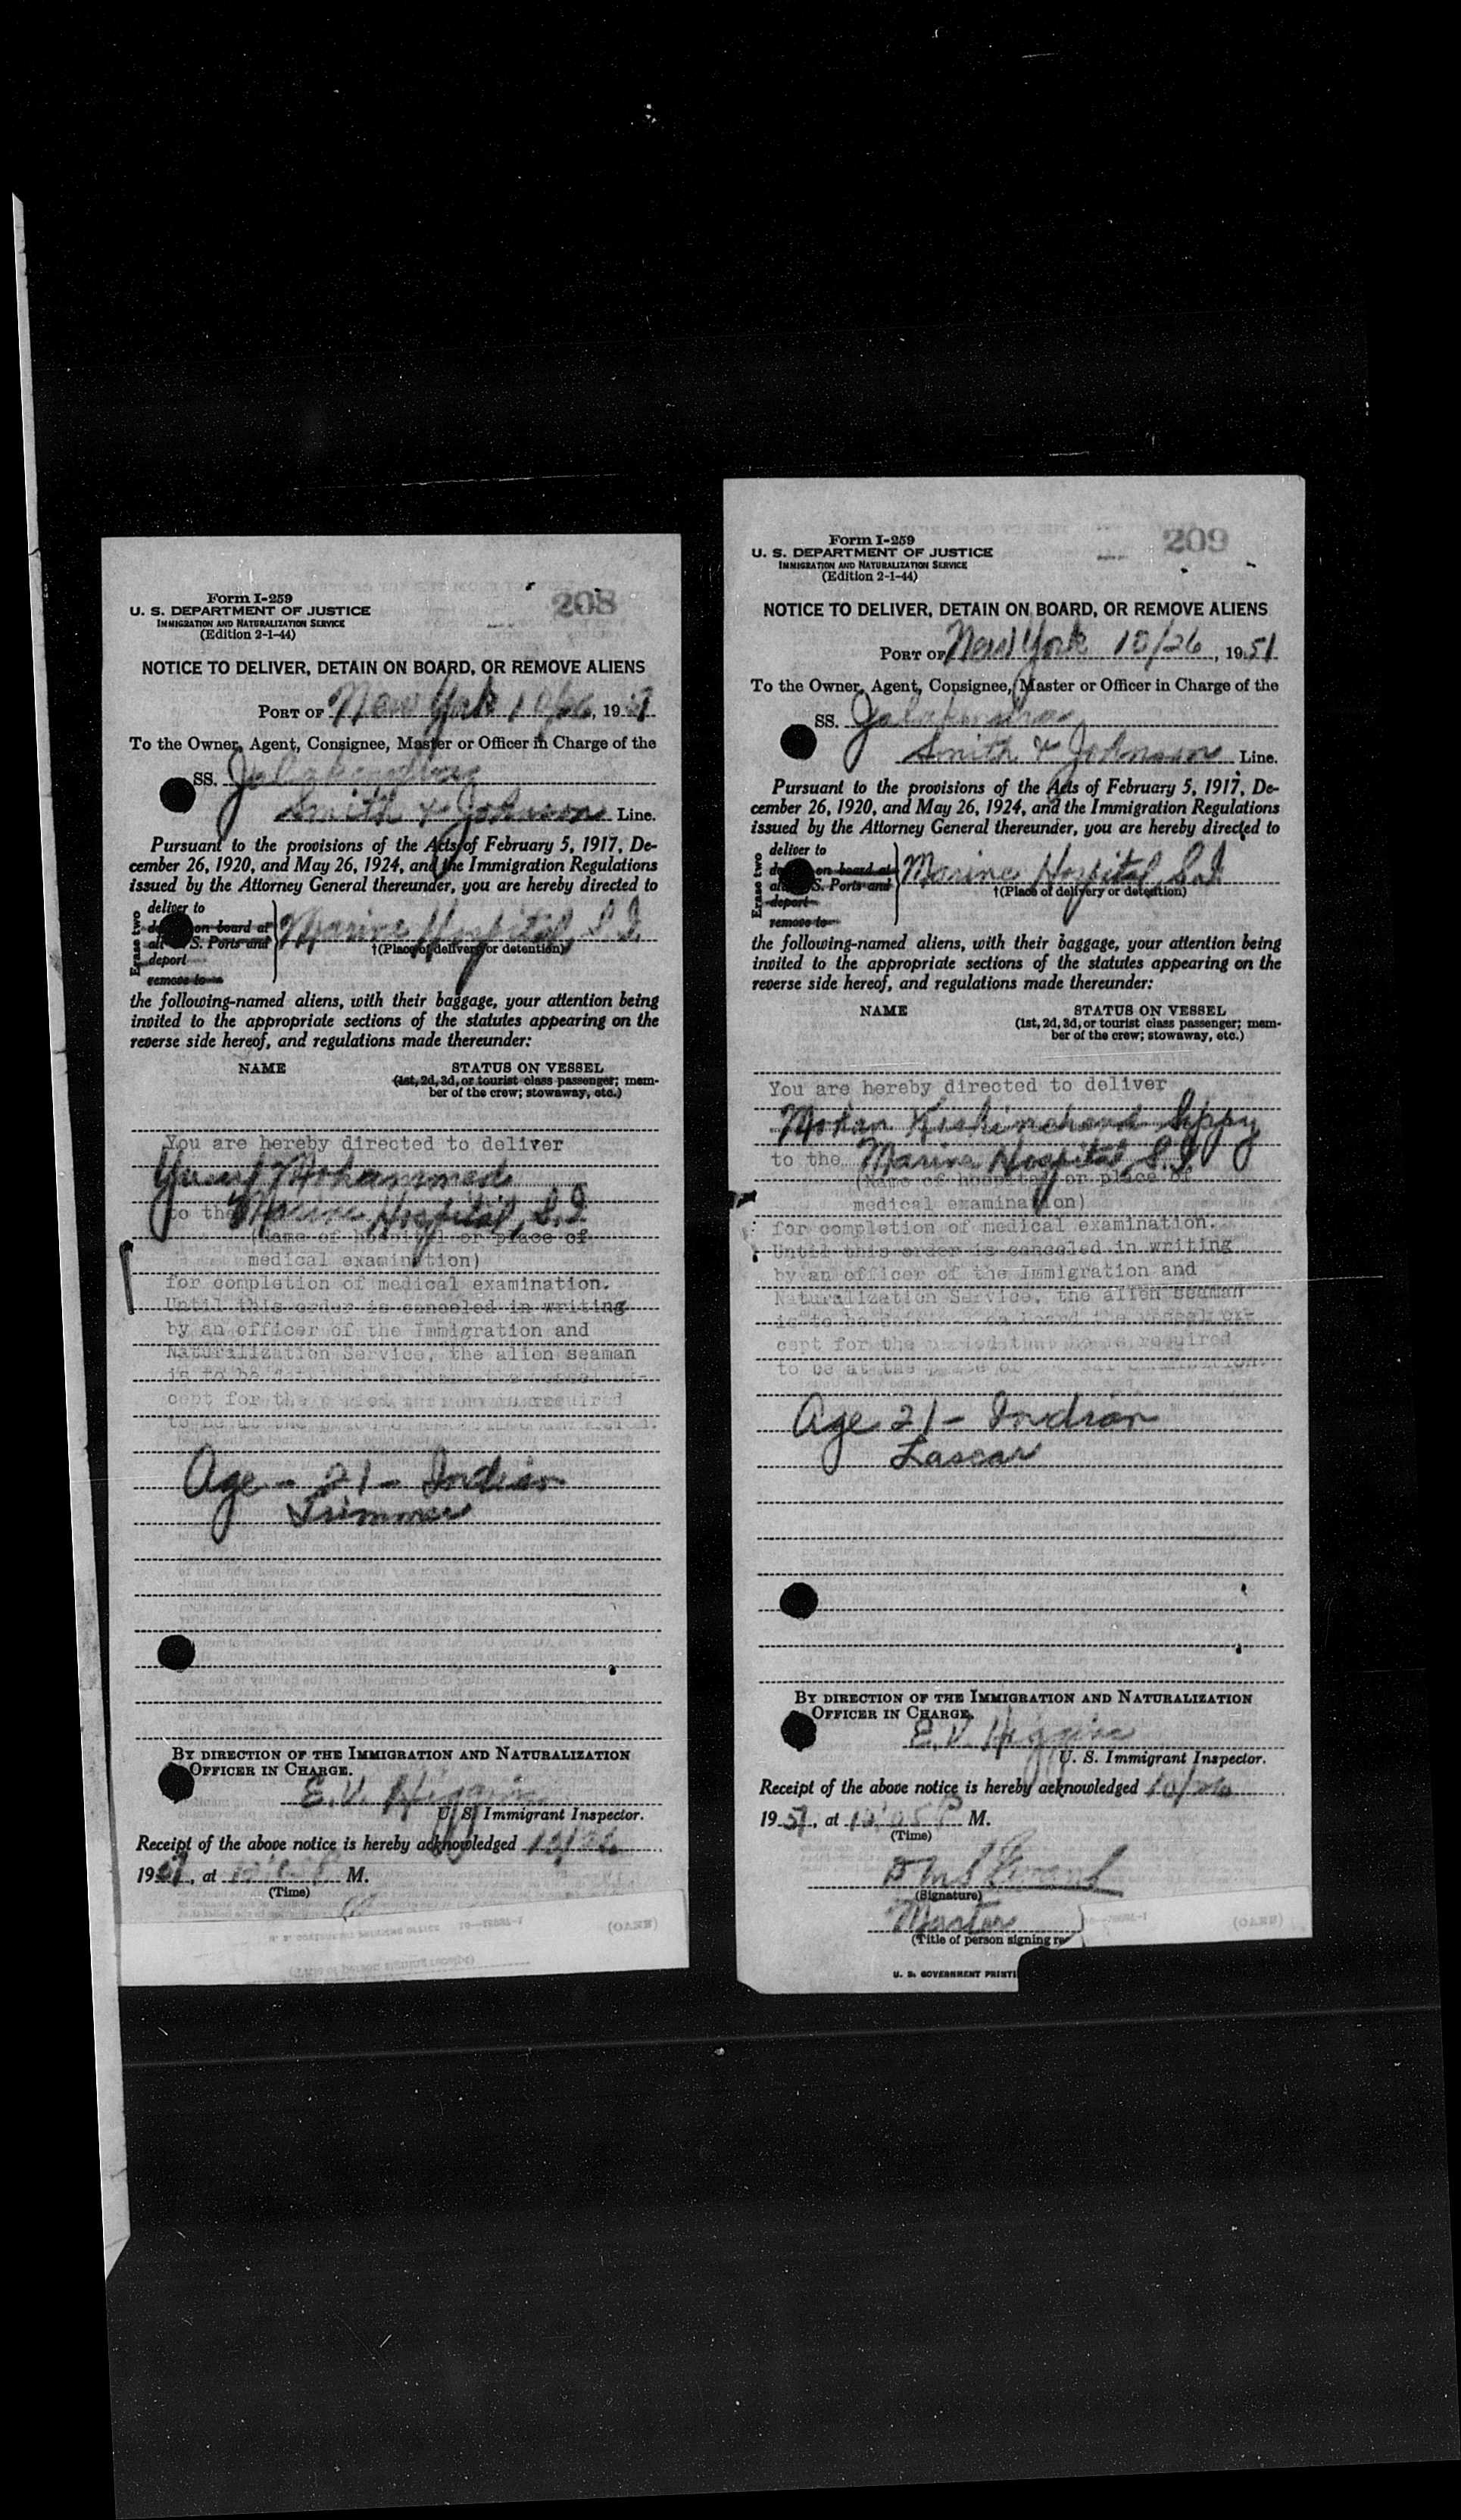 208
Form I-259
U. S. DEPARTMENT OF JUSTICE
IMMIGRATION AND NATURALIZATION SERVICE
(Edition 2-1-44)
NOTICE TO DELIVER, DETAIN ON BOARD, OR REMOVE ALIENS
PORT OF New York 10/26, 1951
To the Owner, Agent, Consignee, Master or Officer in Charge of the
SS.
Smith & Johnson Line.
Pursuant to the provisions of the Acts of February 5, 1917, De-
cember 26, 1920, and May 26, 1924, and the Immigration Regulations
issued by the Attorney General thereunder, you are hereby directed to
Erase two
deliver to
on board at
all S. Ports and
deport
remove to
Marine Hospital, S.I.
†(Place of delivery or detention)
the following-named aliens, with their baggage, your attention being
invited to the appropriate sections of the statutes appearing on the
reverse side hereof, and regulations made thereunder:
NAME STATUS ON VESSEL
(1st, 2d, 3d, or tourist class passenger; mem-
ber of the crew; stowaway, etc.)
You are hereby directed to deliver
Yusuf Mohammed
to the Marine Hospital, S.I.
(Name of hospital or place of
medical examination)
for completion of medical examination.
Until this order is canceled in writing
by an officer of the Immigration and
Naturalization Service, the alien seaman
is to be
cept for the period required
Age - 21 - Indian
Trimmer
BY DIRECTION OF THE IMMIGRATION AND NATURALIZATION
OFFICER IN CHARGE.
E.V. Higgins
U. S. Immigrant Inspector.
Receipt of the above notice is hereby acknowledged 10/26
1951, at M.
(Time)
(OVER)
(Title of person signing receipt)
209
Form I-259
U. S. DEPARTMENT OF JUSTICE
IMMIGRATION AND NATURALIZATION SERVICE
(Edition 2-1-44)
NOTICE TO DELIVER, DETAIN ON BOARD, OR REMOVE ALIENS
PORT OF New York 10/26, 1951
To the Owner, Agent, Consignee, Master or Officer in Charge of the
SS.
Smith & Johnson Line.
Pursuant to the provisions of the Acts of February 5, 1917, De-
cember 26, 1920, and May 26, 1924, and the Immigration Regulations
issued by the Attorney General thereunder, you are hereby directed to
Erase two
deliver to
on board at
all S. Ports and
deport
remove to
Marine Hospital, S.I.
†(Place of delivery or detention)
the following-named aliens, with their baggage, your attention being
invited to the appropriate sections of the statutes appearing on the
reverse side hereof, and regulations made thereunder:
NAME STATUS ON VESSEL
(1st, 2d, 3d, or tourist class passenger; mem-
ber of the crew; stowaway, etc.)
You are hereby directed to deliver
Mohan Kishinchand Sippy
to the Marine Hospital, S.I.
(Name of hospital or place of
medical examination)
for completion of medical examination.
Until this order is canceled in writing
by an officer of the Immigration and
Naturalization Service, the alien seaman
is to be on board the
cept for the period that he is required
to be at the place of
Age 21 - Indian
Lascar
BY DIRECTION OF THE IMMIGRATION AND NATURALIZATION
OFFICER IN CHARGE.
E.V. Higgins
U. S. Immigrant Inspector.
Receipt of the above notice is hereby acknowledged 10/26
1951, at M.
(Time)
(Signature)
Master
(Title of person signing re
(OVER)
U. S. GOVERNMENT PRINTI